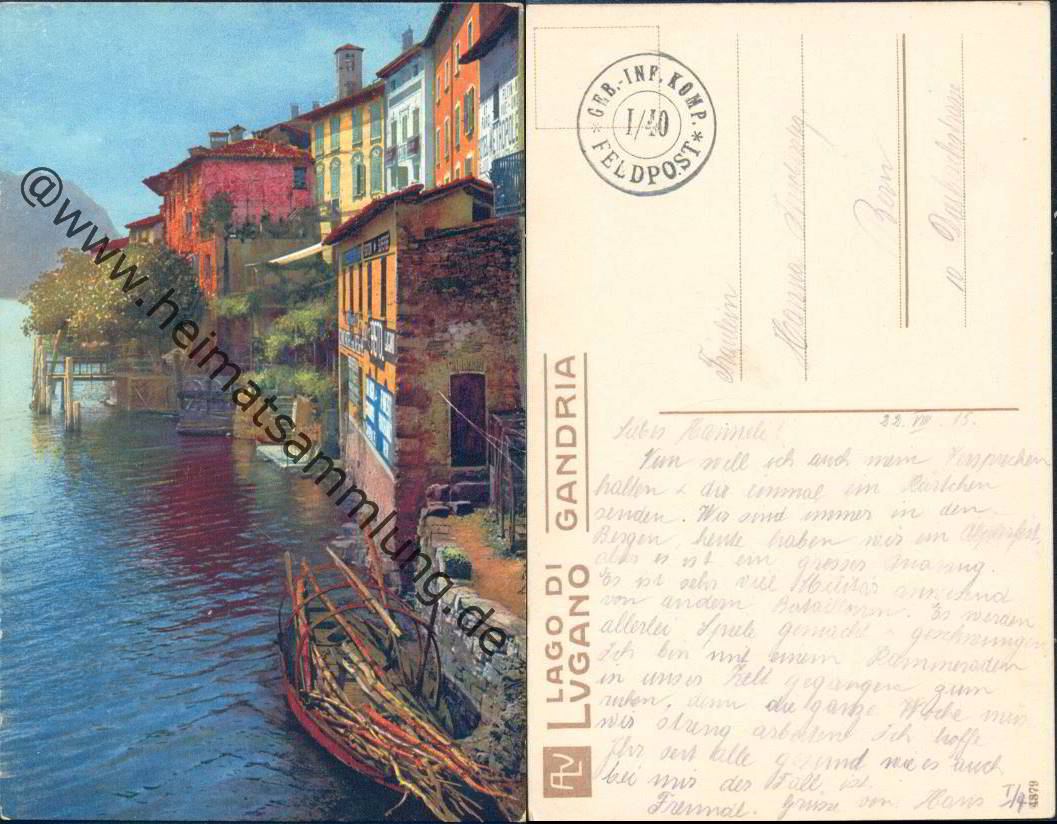 @www.heimatsammlung.de
GEB.-INF. KOMP.
I/40
* FELDPOST *
Fräulein
Hanna
Bern
10
LAGO DI
LVGANO
GANDRIA
4879
22. VIII. 15.
Liebes Hannele!
Nun will ich auch mein Versprechen
halten & dir einmal ein Kärtchen
senden. Wir sind immer in den
Bergen, heute haben wir ein
also es ist ein grosser
Es ist sehr viel Militär anwesend
von andern Bataillonen. Es werden
allerlei Spiele gemacht & geschwungen.
Ich bin mit einem Kammeraden
in unser Zelt gegangen zum
ruhen, denn die ganze Woche muss
wir streng arbeiten. Ich hoffe
Ihr seit alle gesund wie es auch
bei mir der Fall ist.
Freundl. Grüsse von Hans